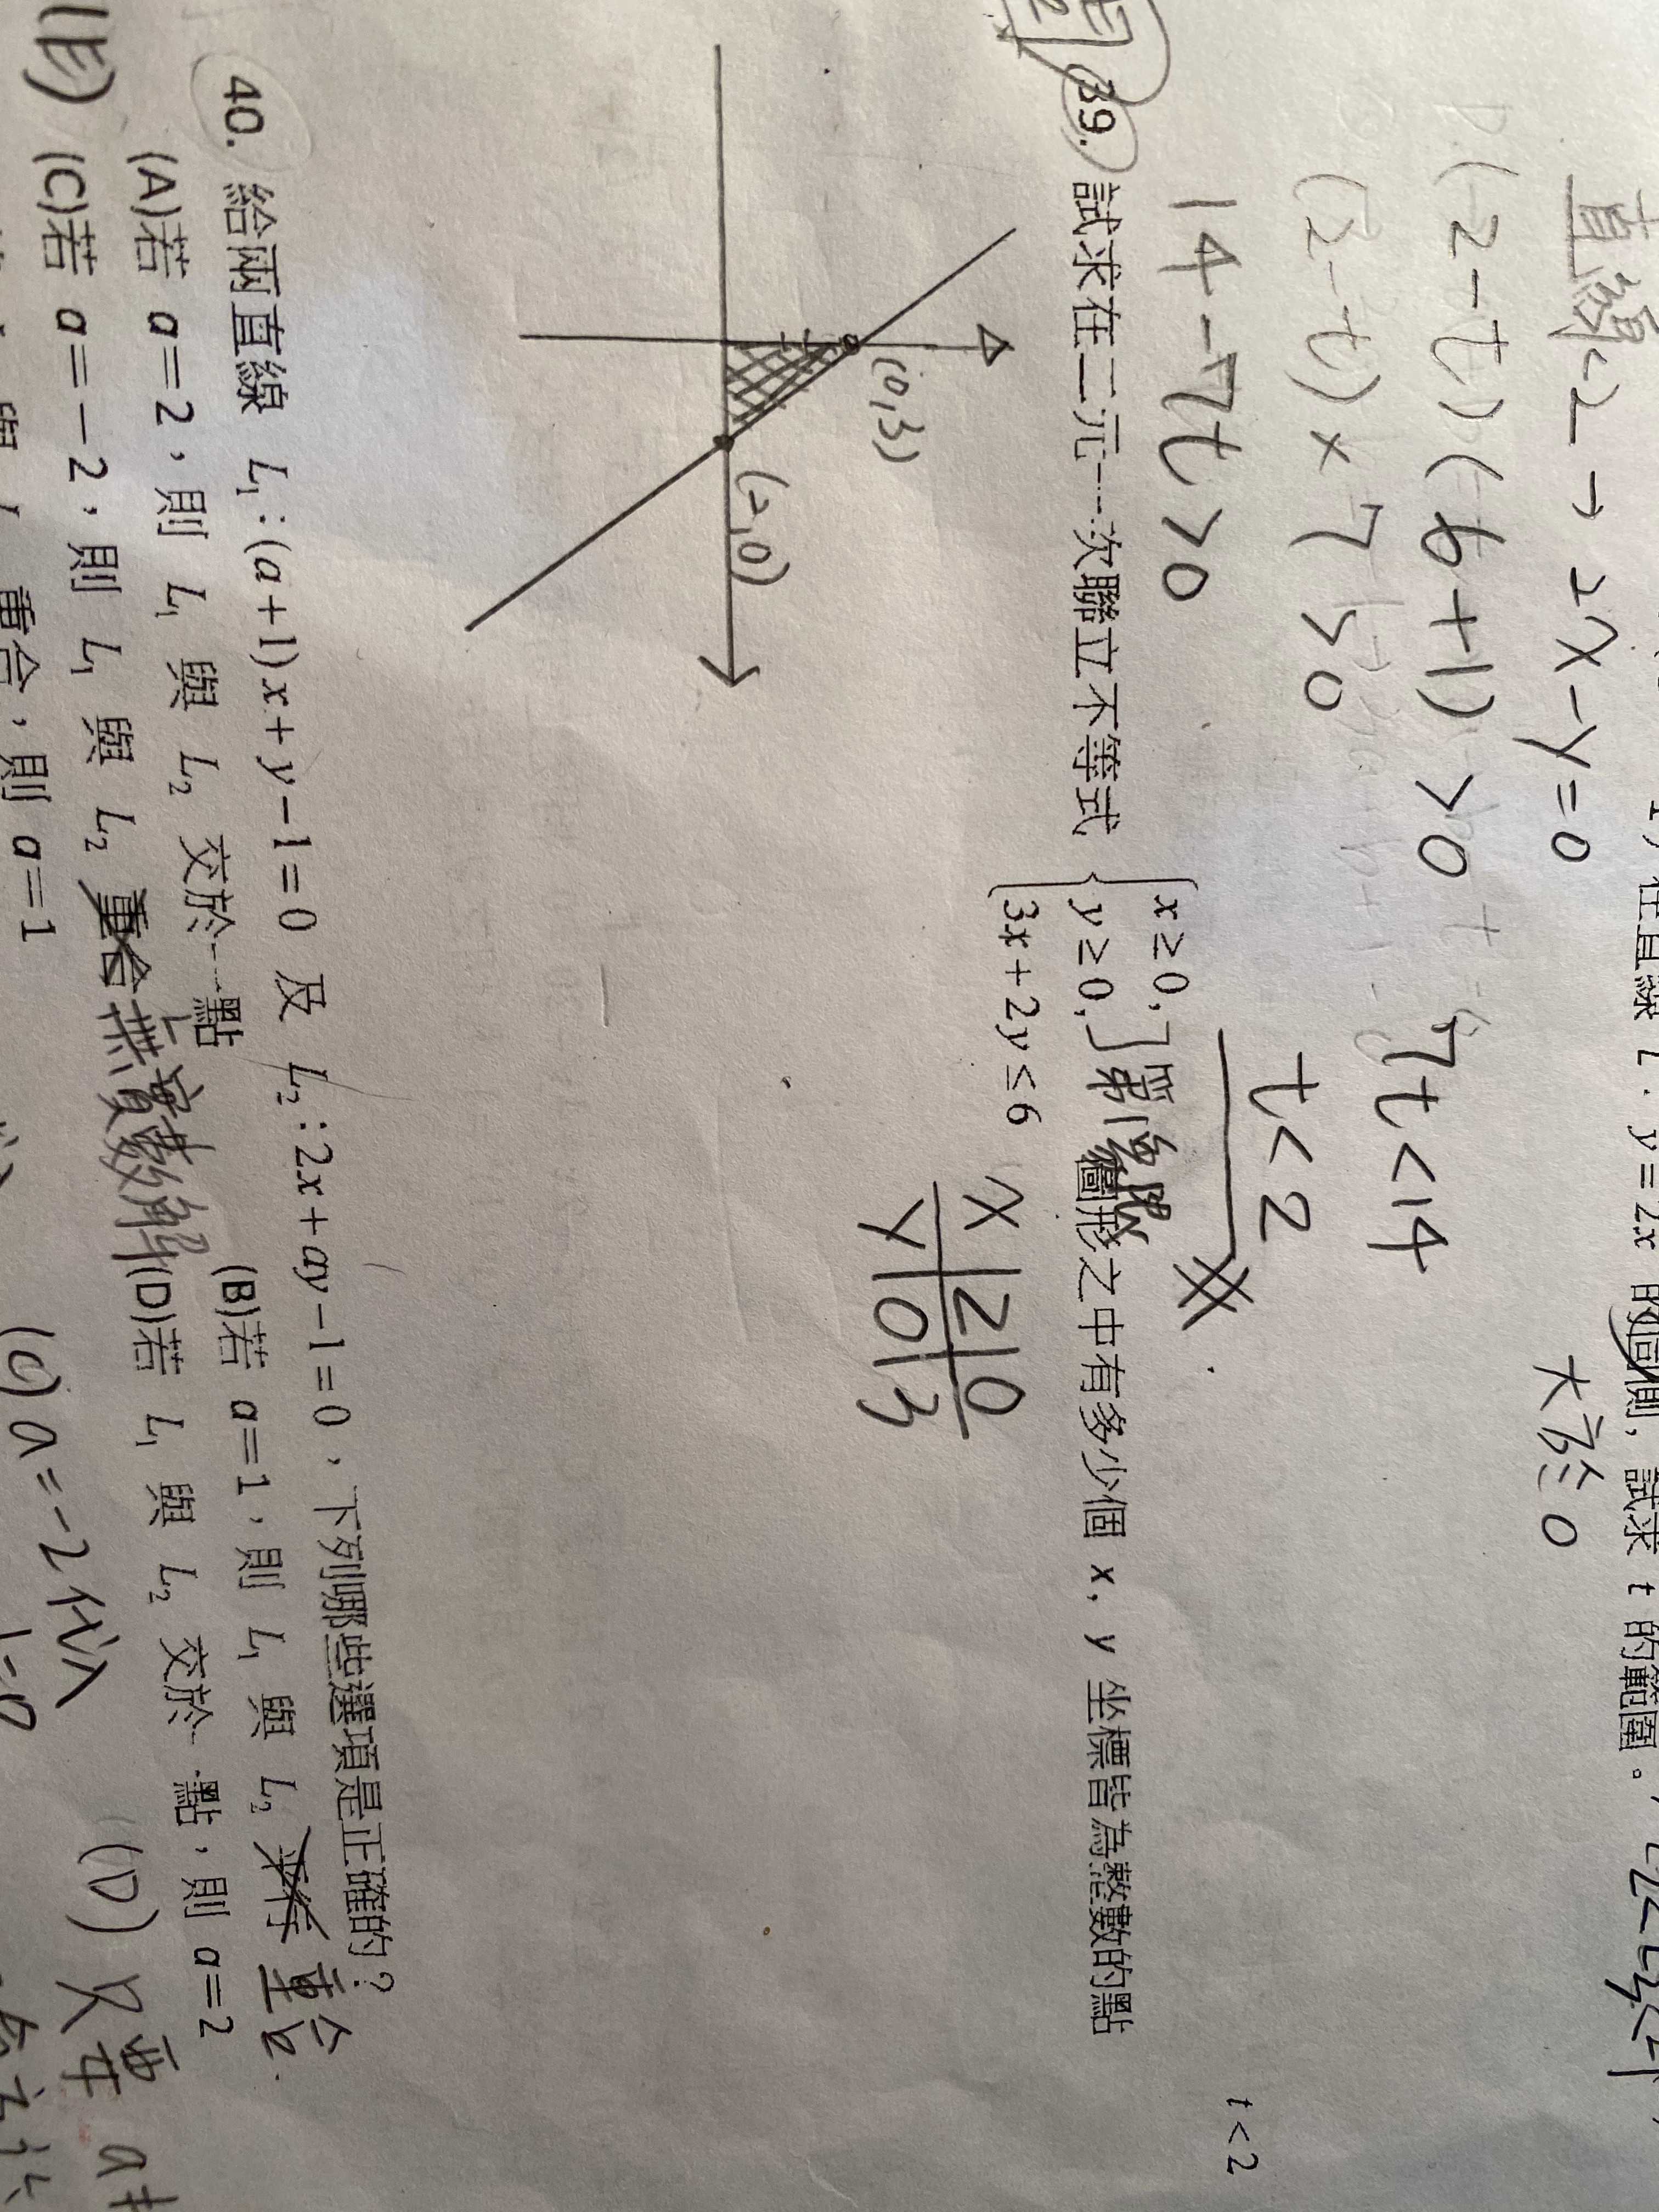 在直線 L : y = 2x 的同側, 試求 t 的範圍。
直線 L2 → 2x - y = 0 大於 0
(-2-t)(6+1) > 0 7t < 14
(2-t) × 7 > 0 t < 2
14 - 7t > 0 t < 2
39. 試求在二元一次聯立不等式 { x ≥ 0, y ≥ 0, 3x + 2y ≤ 6 圖形之中有多少個 x, y 坐標皆為整數的點
第一象限
x 2 0
y 0 3
(0,3)
(2,0)
40. 給兩直線 L₁ : (a+1)x + y - 1 = 0 及 L₂ : 2x + ay - 1 = 0,下列哪些選項是正確的?
(A)若 a = 2,則 L₁ 與 L₂ 交於一點 (B)若 a = 1,則 L₁ 與 L₂ 平行 重合
(C)若 a = -2,則 L₁ 與 L₂ 重合 無實數解 (D)若 L₁ 與 L₂ 交於一點,則 a = 2
(E) 重合,則 a = 1
(C) a = -2 代入 (D) 只要 a≠